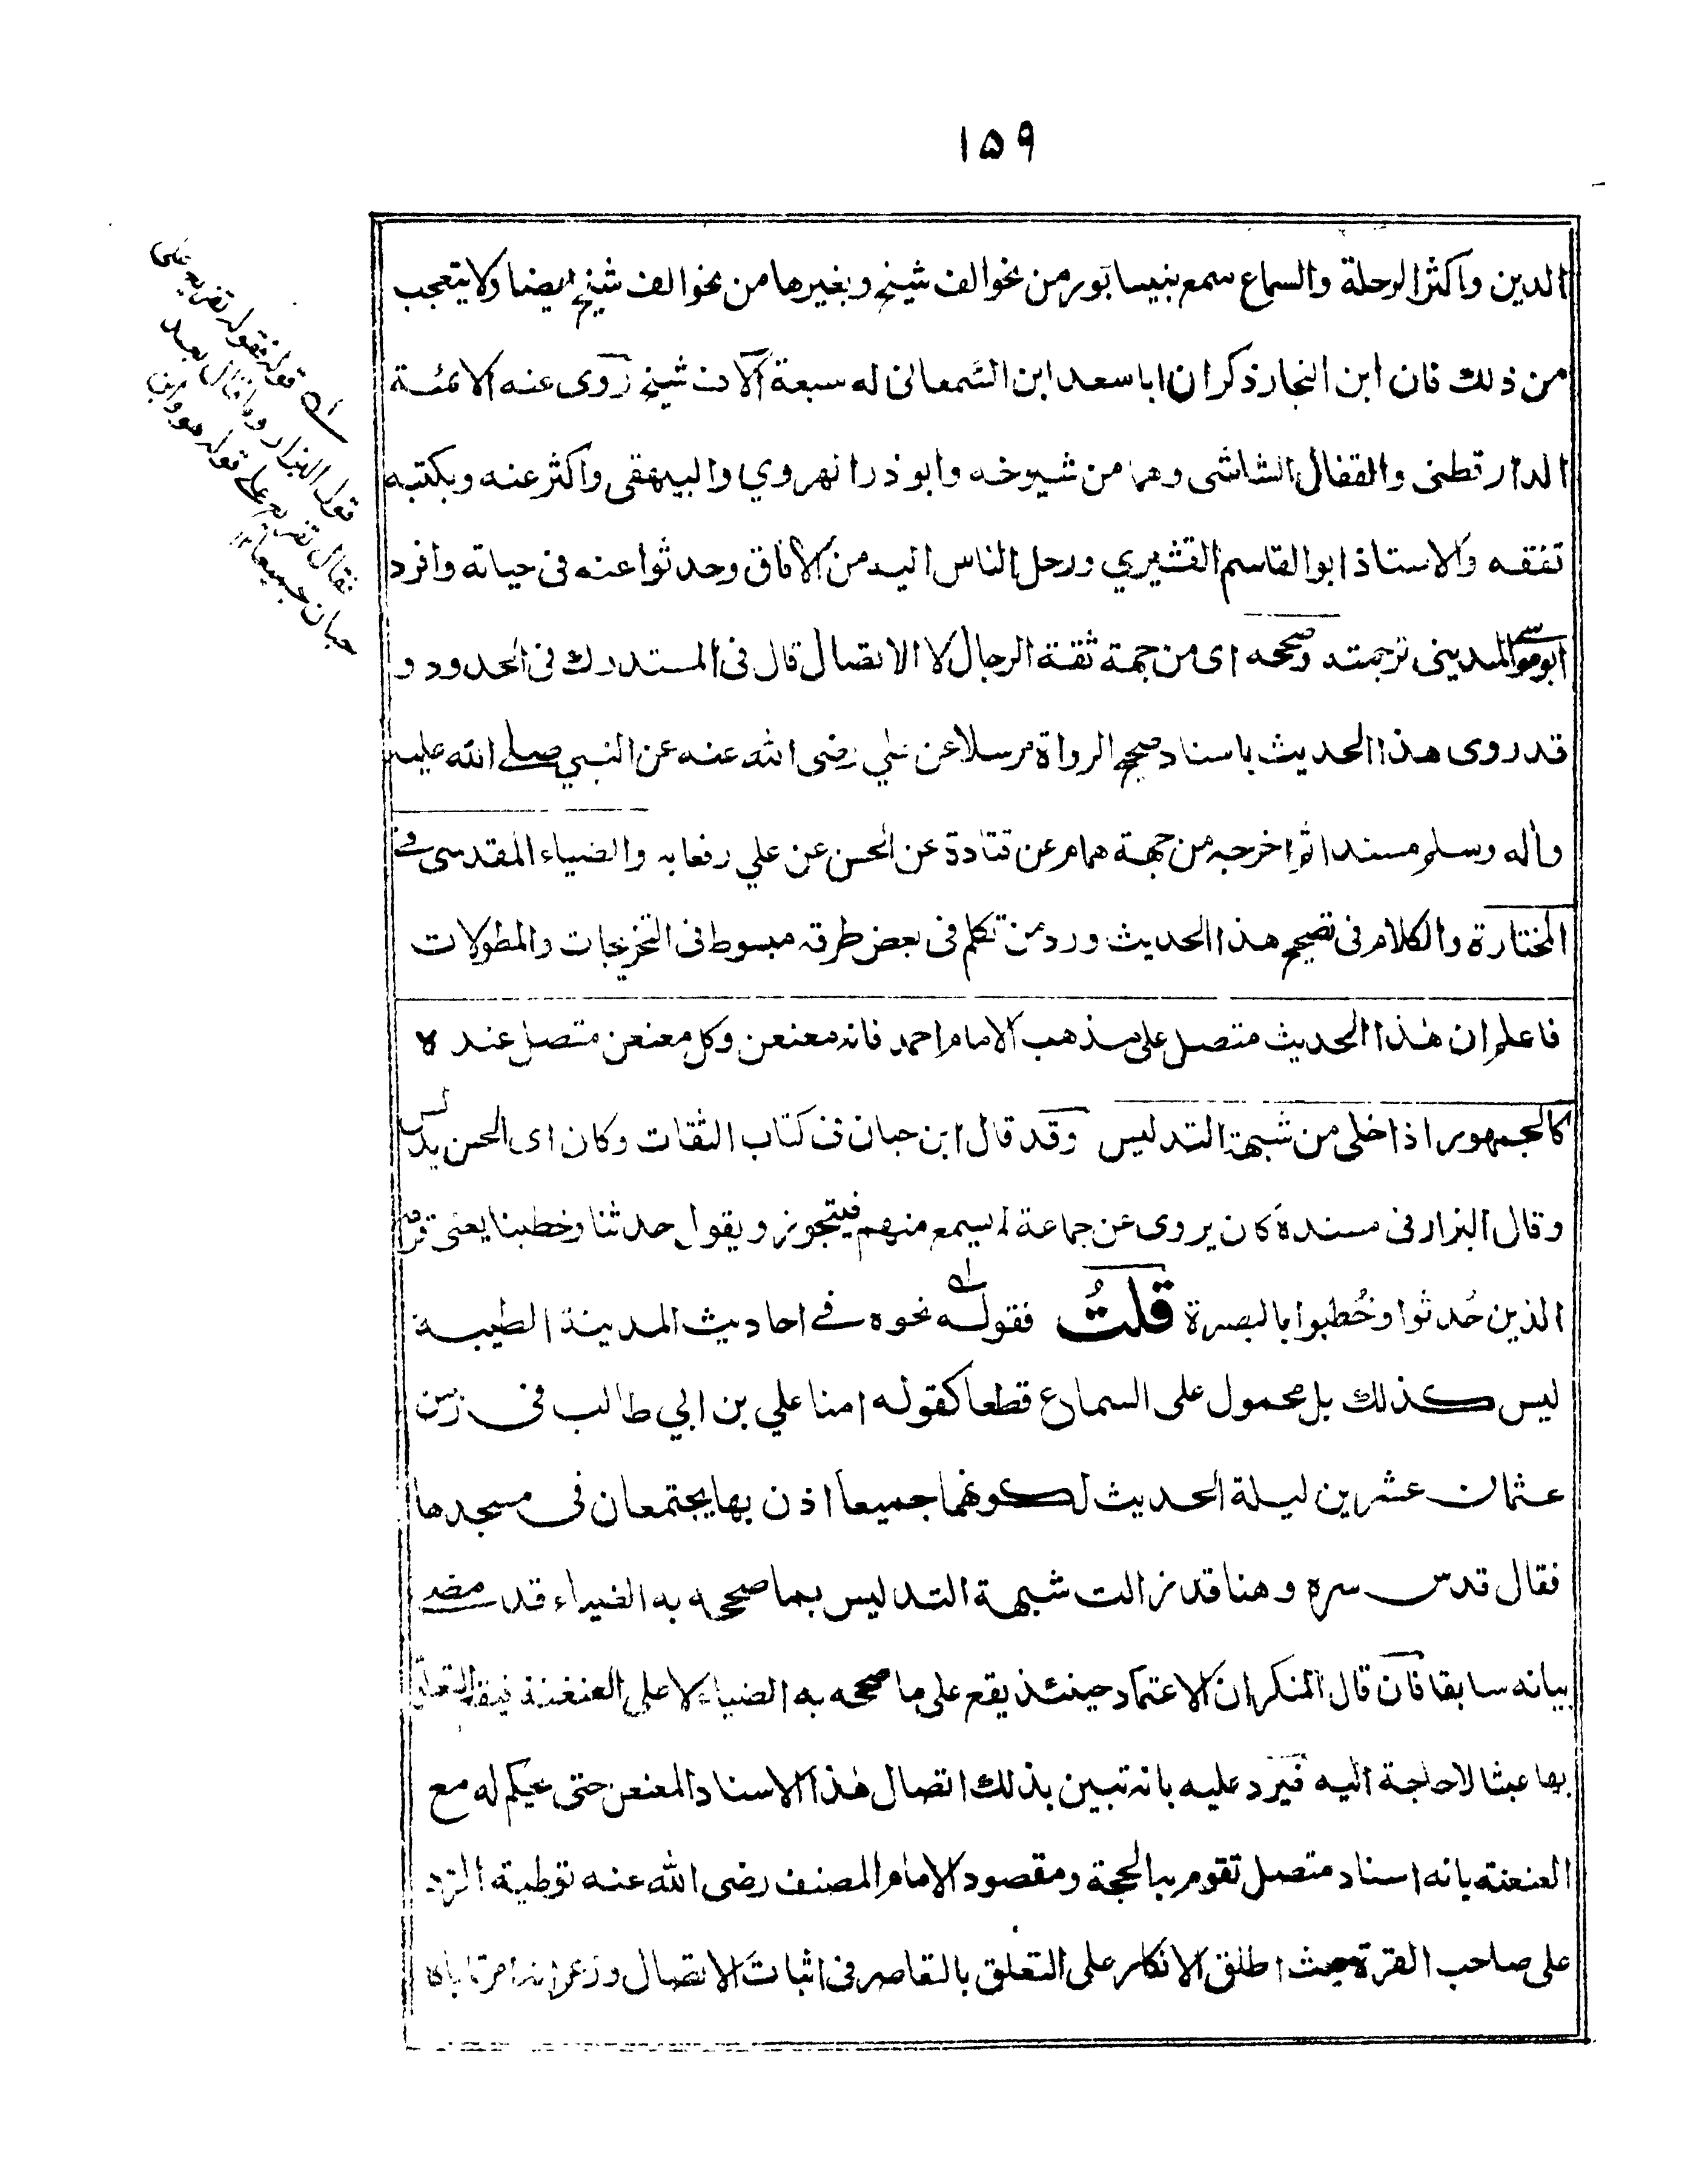 ١٥٩
الدين واكثر الرحلة والسماع سمع بنيسابور من نحو الف شيخ وبغيرها من نحو الف شيخ ايضا ولا يتعجب
من ذلك فان ابن النجار ذكر ان ابا سعد ابن السمعانى له سبعة آلاف شيخ روى عنه الائمة
الدارقطنى والقفال الشاشى وهما من شيوخه وابو ذر الهروي والبيهقى واكثر عنه وبكتبه
تفقه والاستاذ ابو القاسم القشيري ورحل الناس اليه من الآفاق وحدثوا عنه فى حياته وافرد
ابو موسى المدينى ترجمته وصححه اى من جهة ثقة الرجال لا الاتصال قال فى المستدرك فى الحدود و
قد روى هذا الحديث باسناد صحيح الرواة مرسلا عن علي رضى الله عنه عن النبي صلے الله عليه
وآله وسلم مسندا ثم اخرجه من جهة همام عن قتادة عن الحسن عن علي رفعا به والضياء المقدسى فے
المختارة والكلام فى تصحيح هذا الحديث ورد من تكلم فى بعض طرقه مبسوط فى التخريجات والمطولات
فاعلم ان هذا الحديث متصل على مذهب الامام احمد فانه معنعن وكل معنعن متصل عنده
كالجمهور اذا خلى من شبهة التدليس وقد قال ابن حبان فى كتاب الثقات وكان اى الحسن يدلس
وقال البزار فى مسنده كان يروى عن جماعة لم يسمع منهم فيتجوز ويقول حدثنا وخطبنا يعنى قومه
الذين حُدثوا وخُطبوا بالبصرة قلتُ فقوله نحوه فے احاديث المدينة الطيبة
ليس كذلك بل محمول على السماع قطعا كقوله امنا علي بن ابي طالب فى زمن
عثمان عشرين ليلة الحديث لكونهما جميعا اذن بها يجتمعان فى مسجدها
فقال قدس سره وهنا قد زالت شبهة التدليس بما صححه به الضياء قد مضے
بيانه سابقا فان قال المنكر ان الاعتماد حينئذ يقع على ما صححه به الضياء لا على العنعنة فيقع التعلق
بها عبثا لا حاجة اليه فيرد عليه بانه تبين بذلك اتصال هذا الاسناد المعنعن حتى يحكم له مع
العنعنة بانه اسناد متصل تقوم به الحجة ومقصود الامام المصنف رضى الله عنه توطية الرد
على صاحب القرة حيث اطلق الانكار على التعلق بالقاصر فى اثبات الاتصال وزعم
له قوله فقوله تفريع على
قول البزار وما قال بعد
فقال تفريع على قوله هو وابن
حبان جميعا ١٢